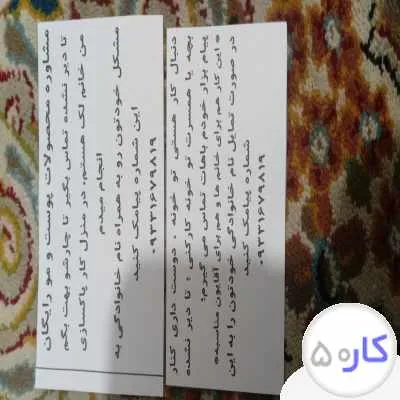 مشاوره محصولات پوست و مو رایگان
تا دیر نشده تماس بگیر تا چارشو بهت بگم
من خانم لک هستم، در منزل کار پاکسازی
انجام میدم
مشکل خودتون رو به همراه نام خانوادگی به
این شماره پیامک کنید.
۰۹۳۳۱۶۷۹۸۱۹
دنبال کار هستی تو خونه . دوست داری کنار
بچه یا همسرت تو خونه کارکنی : تا دیر نشده
پیام بزار خودم باهات تماس می گیرم؛
ه این کار هم برای خانم ها و هم برای آقایون مناسبه
در صورت تمایل نام خانوادگی خودتون را به این
شماره پیامک کنید.
۰۹۳۳۱۶۷۹۸۱۹
کاره۵۰